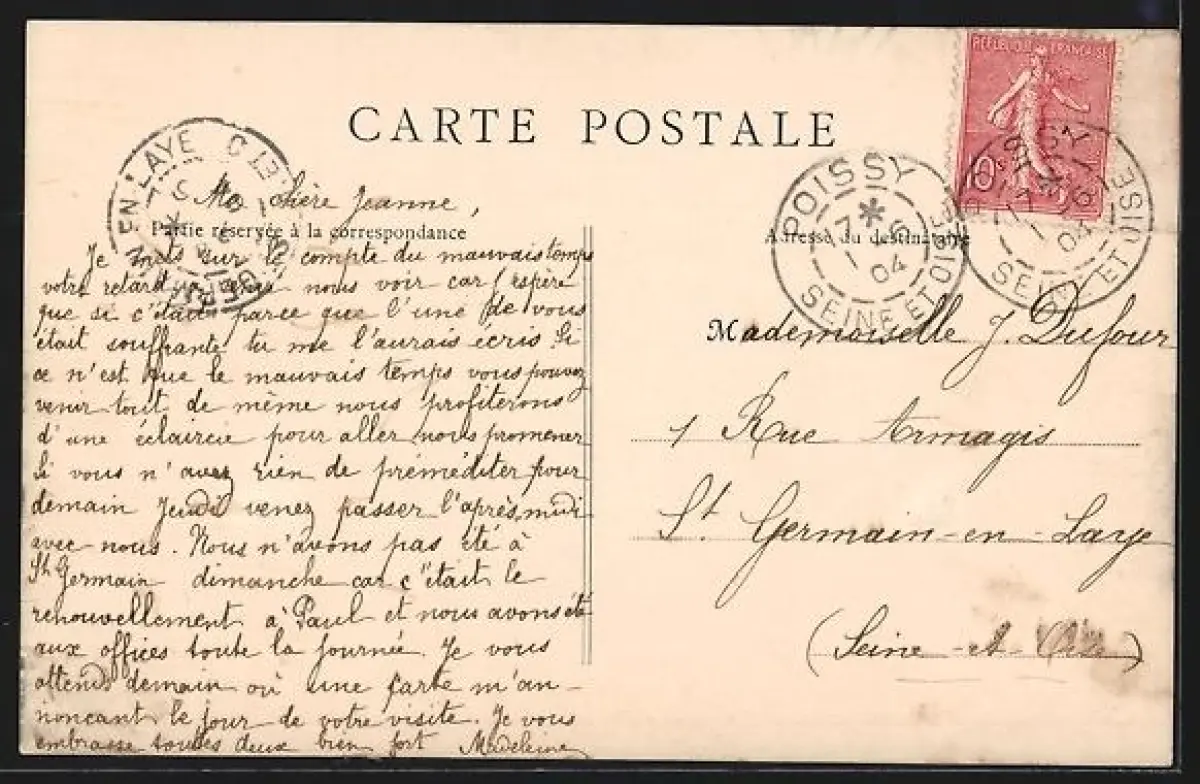 CARTE POSTALE
RÉPUBLIQUE FRANÇAISE
10c
POISSY
17 * 6
04
SEINE ET OISE
POISSY
17 6
04
SEINE ET OISE
EN LAYE
Ma chère Jeanne,
Partie réservée à la correspondance
Je mets sur le compte du mauvais temps
votre retard à venir nous voir car j'espère
que si c'était parce que l'une de vous
était souffrante tu me l'aurais écris. Si
ce n'est que le mauvais temps vous pouvez
venir tout de même nous profiterons
d'une éclaircie pour aller nous promener
Si vous n'avez rien de préméditer pour
demain Jeudi venez passer l'après midi
avec nous. Nous n'avons pas été à
St Germain dimanche car c'était le
renouvellement à Paul et nous avons été
aux offices toute la journée. Je vous
attends demain où une carte m'an-
nonçant le jour de votre visite. Je vous
embrasse toutes deux bien fort Madeleine
Adresse du destinataire
Mademoiselle J. Dufour
1 Rue Armagis
St Germain-en-Laye
(Seine-et-Oise)